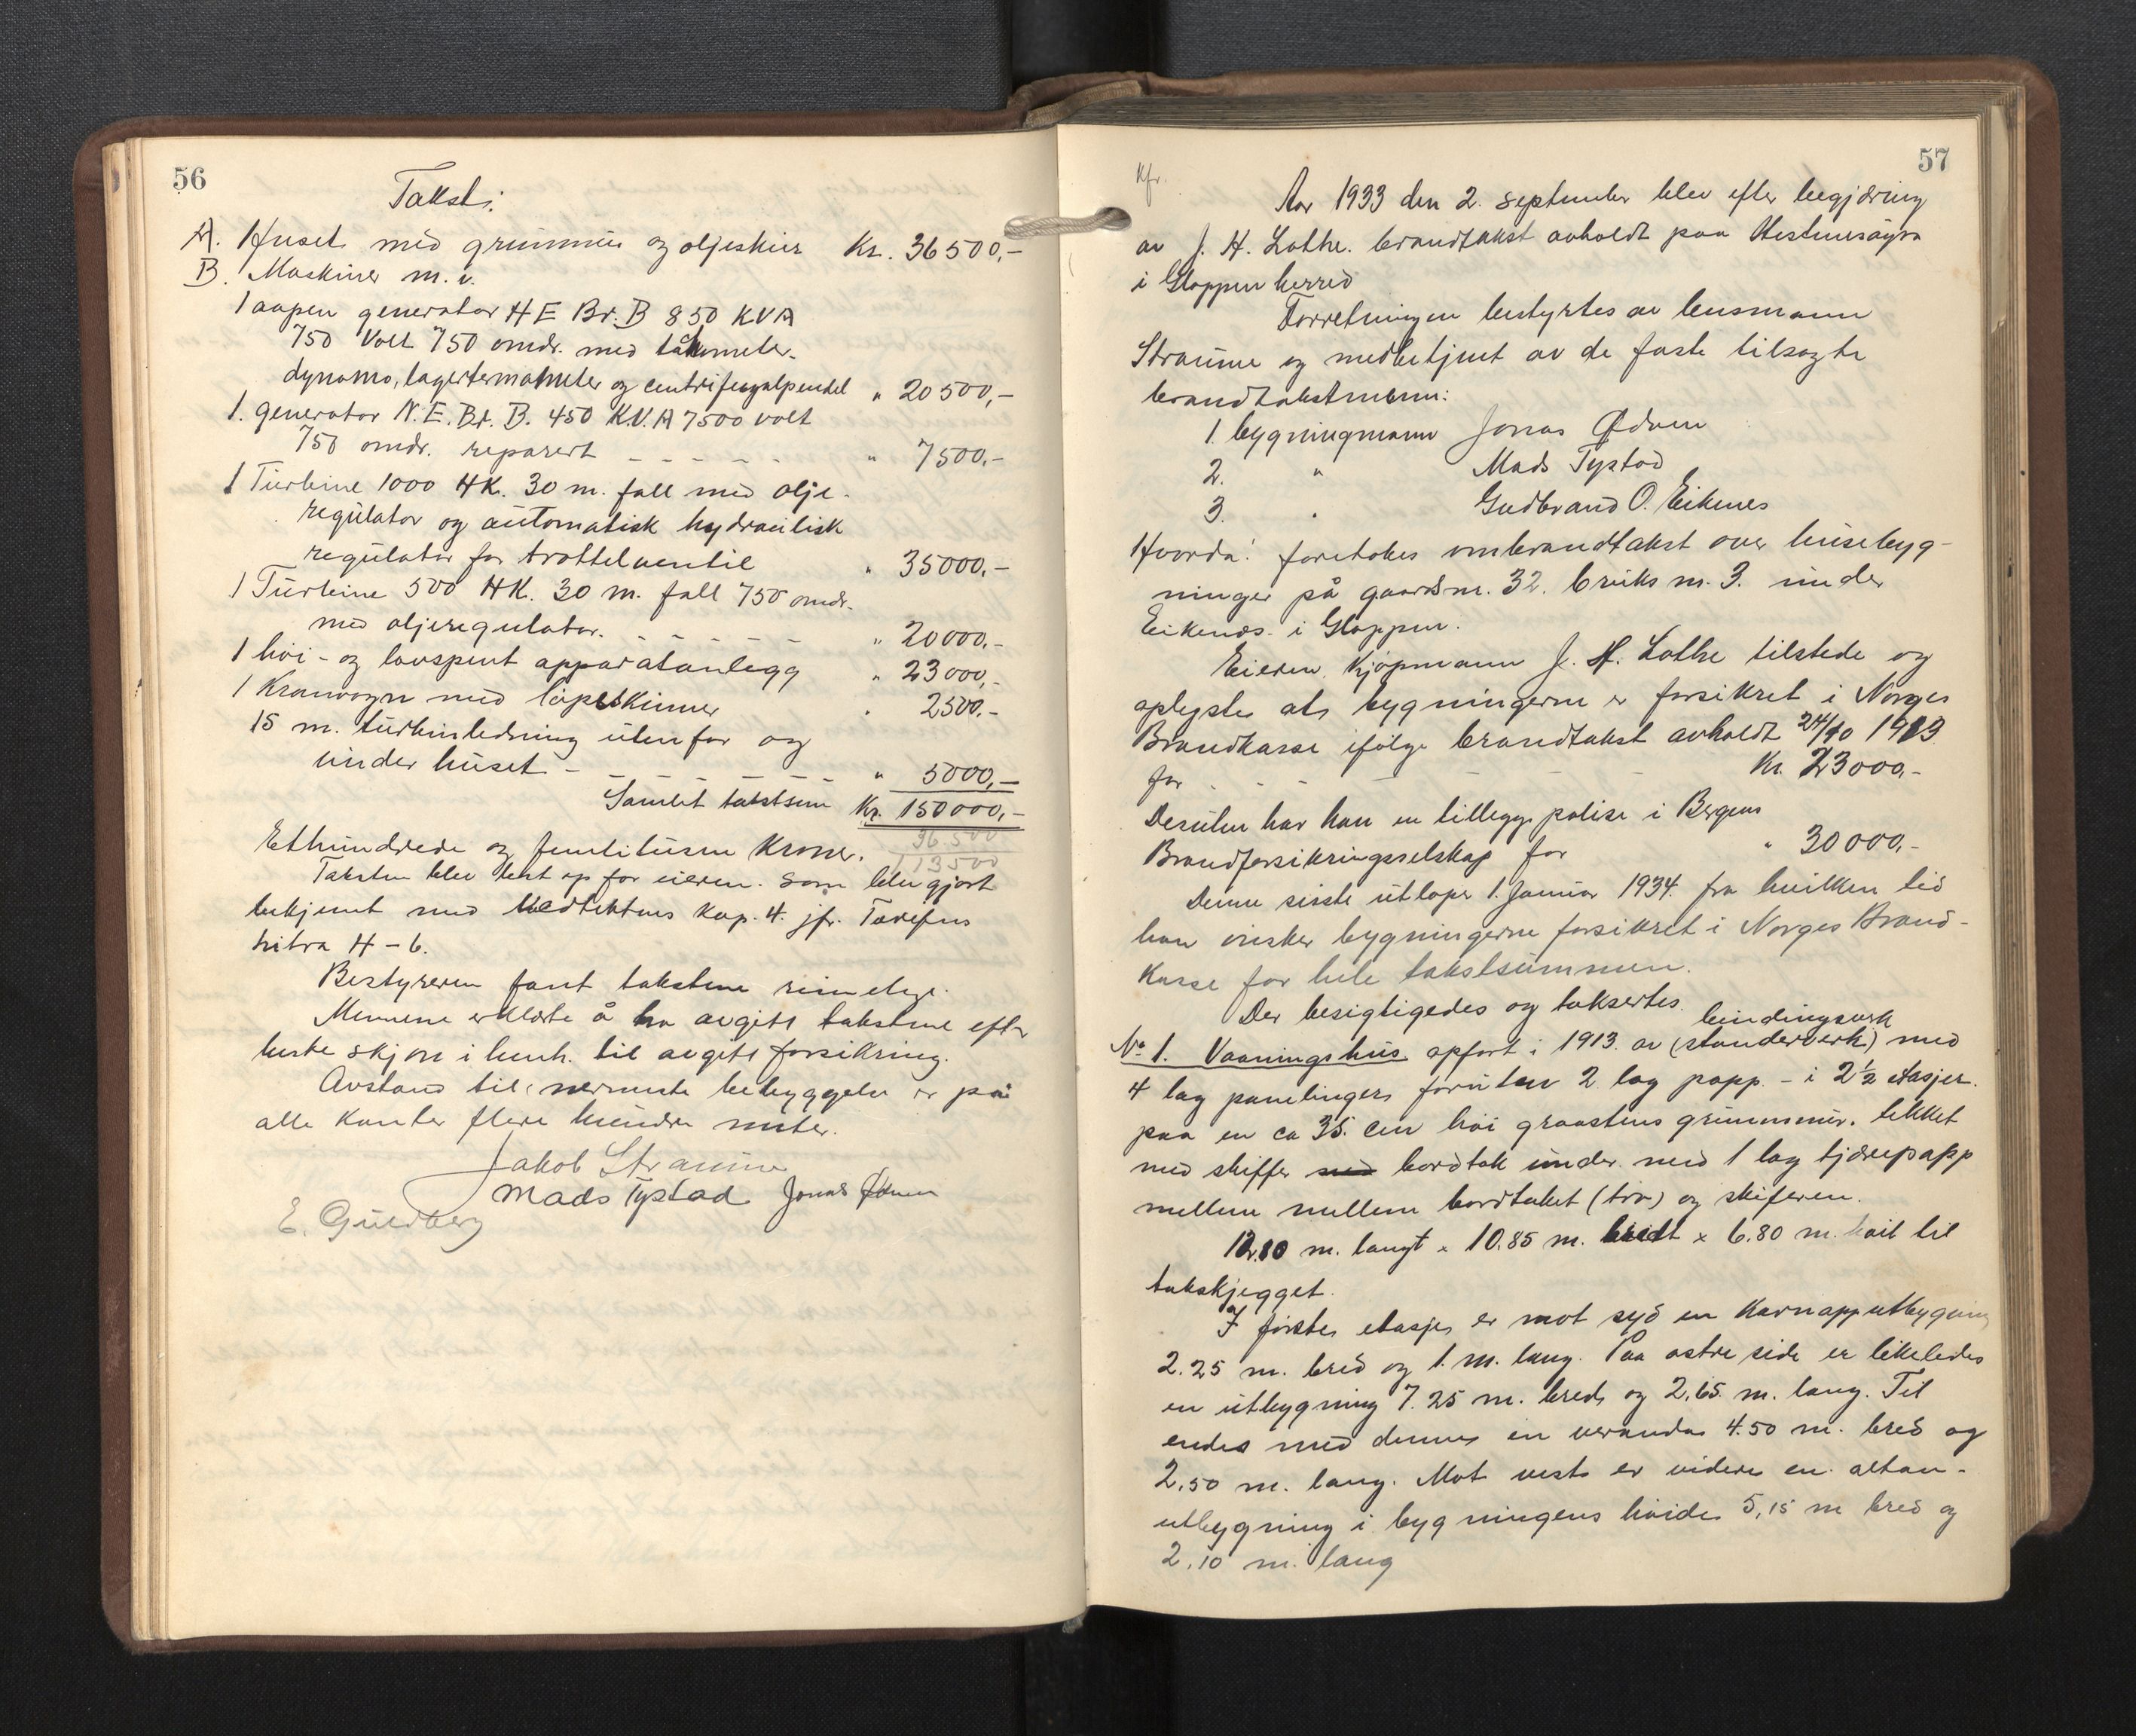 56
Takst:
A. Huset med grunnmur og oljeskur Kr. 36500,-
B. Maskiner m.v.
1 aapen generator N E Br. B 850 KVA
750 Volt 750 omdr. med takometer-
dynamo, lagertermometer og centrifugalpendel " 20500,-
1. generator N.E. Br. B. 450 K.V.A 7500 volt
750 omdr. reparert - - - - - " 7500,-
1 Turbine 1000 HK. 30 m. fall med olje-
regulator og automatisk hydraulisk
regulator for trottelventil " 35000,-
1 Turbine 500 HK. 30 m. fall 750 omdr.
med oljeregulator. - - - - - " 20000,-
1 høi- og lavspent apparatanlegg " 23000,-
1 Kranvogn med løpeskinner " 2500,-
15 m. turbinledning utenfor og
under huset - - - - - " 5000,-
Samlet takstsum Kr. 150000,-
36.500
113500
Ethundrede og femtitusen Kroner.
Taksten blev lest op for eieren. som blev gjort
bekjent med Vedtektens Kap. 4. jfr. Tarefens
litra H-6.
Bestyreren fant takstene rimelige.
Mennene erklærte å ha avgitt takstene efter
beste skjøn i henh. til avgitt forsikring.
Avstand til nærmeste bebyggelse er på
alle kanter flere hundre meter.
Jakob Straume
Mads Tystad Jonas Ødven
E. Guldberg
57
Kfr.
Aar 1933 den 2. september blev efter begjæring
av J. H. Lothe. brandtakst avholdt paa Hestenesøyra
i Gloppen herred
Forretningen bestyrtes av lensmann
Straume og medbetjent av de faste tilsagte
brandtakstmenn:
1. bygningmann Jonas Ødven
2. " Mads Tystad
3. " Gudbrand O. Eikenes
Hvorda! foretokes ombrandtakst over husebyg-
ninger på gaardsnr. 32. bruks nr. 3. under
Eikenes i Gloppen.
Eieren. Kjøpmann J. H. Lothe tilstede og
oplyste at bygningerne er forsikret i Norges
Brandkasse ifølge brandtakst avholdt 24/10 1913
for - - - Kr. 23000,-
Desuten har han en tilleggspolise i Bergens
Brandforsikringsselskap for " 30000,-
Denne siste utløper 1. Januar 1934. fra hvilken tid
han ønsker bygningerne forsikret i Norges Brand-
Kasse for hele takstsummen.
Der besigtigedes og taksertes.
bindingsverk
No 1. Vaaningshus opført i 1913. av (standerverk) med
4 lag panelinger foruten 2 lag papp - i 2½ etasjer.
paa en ca 35. cm høi graastens grunnmur. tekket
med skiffer med bordtak under med 1 lag tjærepapp
mellem mellem bordtaket (tro) og skiferen.
12.80 m. langt x 10.85 m. bredt x 6.80 m. høit til
takskjegget.
I første etasje er mot syd en Karnapputbygning
2.25 m. bred og 1. m. lang. Paa østre side er likeledes
en utbygning 7.25 m. bred og 2.65 m. lang. Til
endes med denne en veranda 4.50 m. bred og
2.50 m. lang. Mot vest er videre en altan-
utbygning i bygningens høide 5,15 m bred og
2.10 m. lang